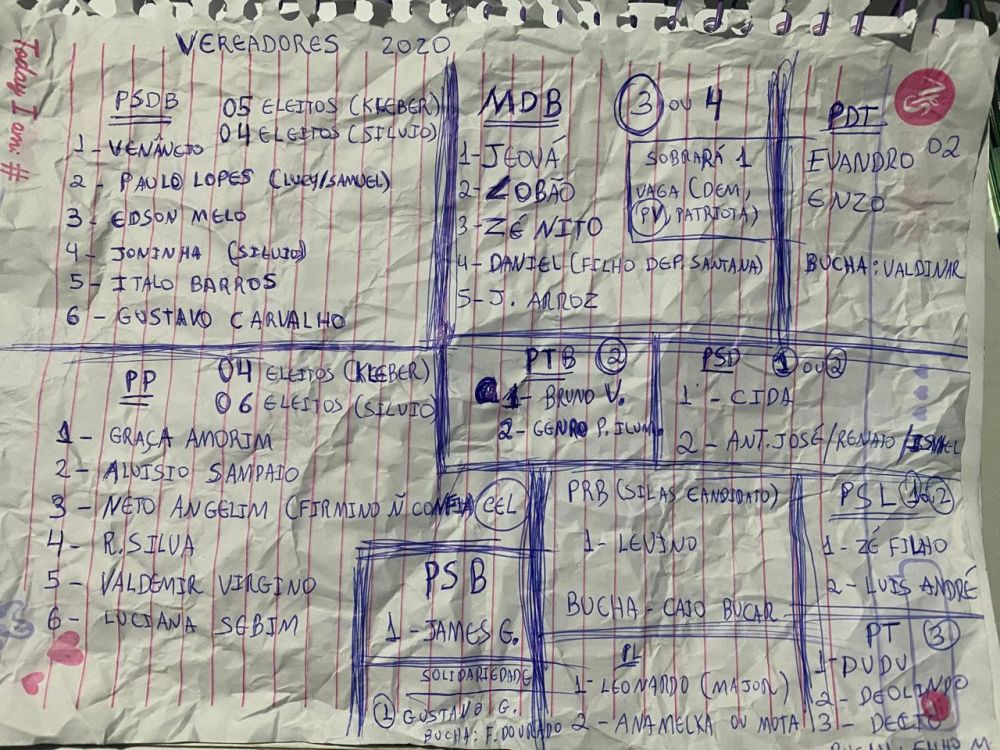 VEREADORES 2020
Today I am: #
PSDB
05 ELEITOS (KLEBER)
04 ELEITOS (SILVIO)
1 - VENÂNCIO
2 - PAULO LOPES (LUCY/SAMUEL)
3 - EDSON MELO
4 - JONINHA (SILVIO)
5 - ITALO BARROS
6 - GUSTAVO CARVALHO
MDB
3 OU 4
1 - JEOVÁ
2 - ZOBÃO
3 - ZÉ NITO
4 - DANIEL (FILHO DEP. SANTANA)
5 - J. ARROZ
SOBRARÁ 1
VAGA (DEM,
PV, PATRIOTA)
PDT
02
EVANDRO
ENZO
BUCHA: VALDINAR
PP
04 ELEITOS (KLEBER)
06 ELEITOS (SILVIO)
1 - GRAÇA AMORIM
2 - ALUISIO SAMPAIO
3 - NETO ANGELIM (FIRMINO Ñ CONFIA) CEL
4 - R. SILVA
5 - VALDEMIR VIRGINO
6 - LUCIANA SEBIM
PTB 2
1 - BRUNO V.
2 - GENRO P. ILUM.
PSD 1 OU 2
1 - CIDA
2 - ANT. JOSÉ/RENATO/ISMAEL
PSB
1 - JAMES G.
SOLIDARIEDADE
1 GUSTAVO G.
BUCHA: F. DOURADO
PRB (SILAS CANDIDATO)
1 - LEVINO
BUCHA - CAIO BUCAR
PL
1 - LEONARDO (MAJOR)
2 - ANAMELKA OU MOTA
PSL 1 OU 2
1 - ZÉ FILHO
2 - LUIS ANDRÉ
PT 3
1 - DUDU
2 - DEOLINDO
3 - DECIO